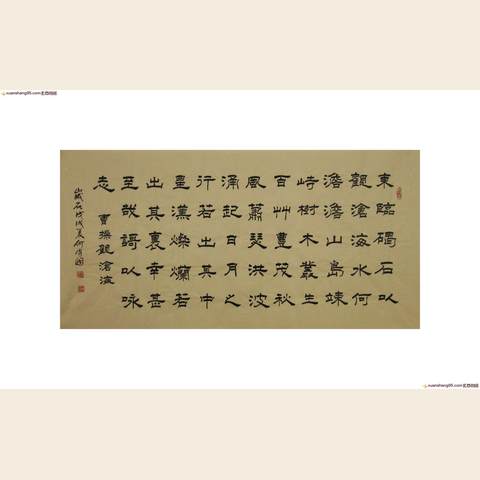 xuanshang95.com
東臨碣石以
觀滄海水何
澹澹山島竦
峙樹木叢生
百艸豊茂秋
風蕭瑟洪波
涌起日月之
行若出其中
星漢燦爛若
出其裏幸甚
至哉謌以咏
志 曹操觀滄海
戊戌夏
xuanshang95.com